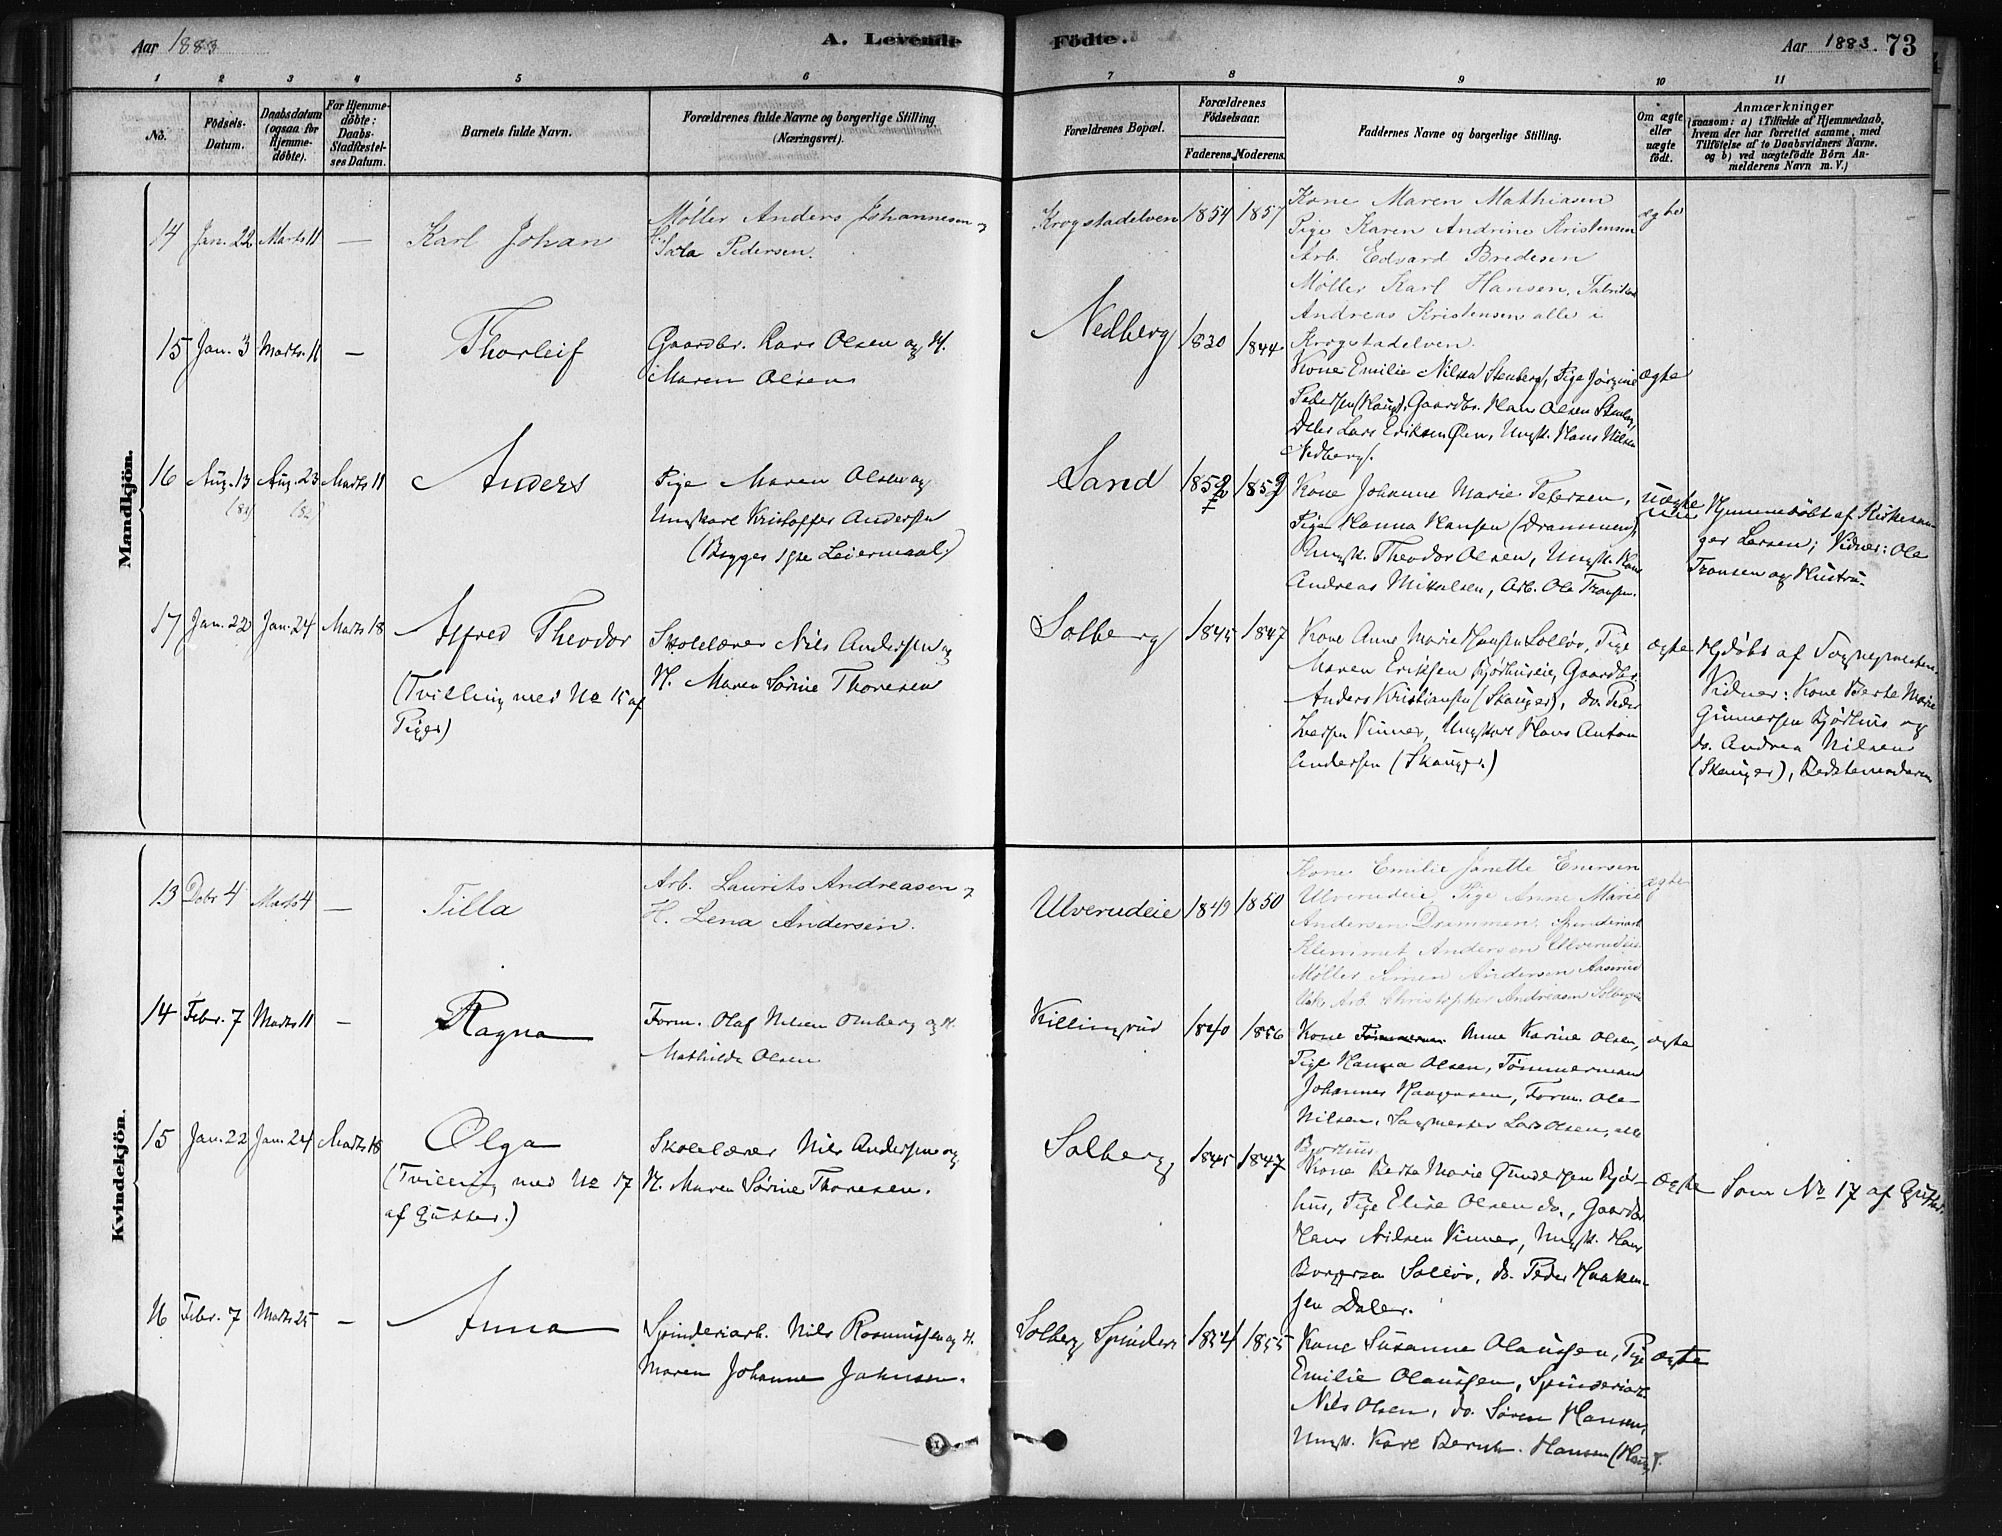 Aar 1883
A. Levende
Födte.
Aar 1883.
73
1 2 3 4 5 6 7 8 9 10 11
No.
Födsels-
Datum.
Daabsdatum
(ogsaa for
Hjemme-
döbte).
For Hjemme-
döbte:
Daabs-
Stadfæstel-
ses Datum.
Barnets fulde Navn.
Forældrenes fulde Navne og borgerlige Stilling
(Næringsvei).
Forældrenes Bopæl.
Forældrenes
Födselsaar.
Faderens. Moderens.
Faddernes Navne og borgerlige Stilling.
Om ægte
eller
uægte
födt.
Anmærkninger
(saasom: a) i Tilfælde af Hjemmedaab,
hvem der har forrettet samme, med
Tilföielse af to Daabsvidners Navne.
og b) ved uægtefödte Börn An-
melderens Navn m. V.)
Mandkjön.
14 Jan. 22 Marts 11 — Karl Johan
Møller Anders Johannesen og
H. Sara Pedersen.
Krogstadelven 1854 1857
Kone Maren Mathiasen
Pige Karen Andrine Kristensen
Arb. Edvard Bredesen
Møller Karl Hansen, Fabrikar
Andreas Kristensen alle i
Krogstadelven.
ægte
15 Jan. 3 Marts 11 — Thorleif
Gaardbr. Lars Olsen og H.
Maren Olsen
Nedberg 1830 1844
Kone Emilie Nilsen Stenberg, Pige Jørgine
Pedersen (Haug), Gaardbr. Hans Olsen Stenberg,
Lars Eriksen Øen, Ungk. Hans Nilsen
Nedberg.
ægte
16 Aug. 13 (82) Aug. 23 (82) Marts 11 Anders
Pige Maren Olsen og
Ungkarl Kristoffer Andersen
(Begges 1ste Leiermaal)
Sand 1859
Kone Johanne Marie Petersen,
Pige Hanna Hansen (Drammen),
Ungk. Theodor Olsen, Ungk. Hans
Andreas Mikkelsen, Arb. Ole Tronsen.
uægte
Hjemmedøbt af Kirkesan-
ger Larsen; Vidner: Ole
Tronsen og Hustru.
17 Jan. 22 Jan. 24 Marts 18 Alfred Theodor
(Tvilling med No 15 af
Piger)
Skolelærer Nils Andersen og
H. Maren Sørine Thoresen
Solberg 1845 1847
Kone Anne Marie Hansen Solløs, Pige
Maren Eriksen Bjørhuseie, Gaardbr.
Anders Kristiansen (Skauger), do. Peder
Iversen Vinner, Ungkarl Hans Anton
Andersen (Skauger.)
ægte
Hjdøbt af Sognepresten
Vidner: Kone Berte Marie
Gunnersen Bjørhus og
do. Andrea Nilsen
(Skauger), Bedstemoderen
Kvindekjön.
13 Decbr 4 Marts 4 — Tilla
Arb. Laurits Andreasen og
H. Lena Andersen.
Ulverudeie 1849 1850
Kone Emilie Janette Enersen
Ulverudeie, Pige Anne Marie
Andersen Drammen. Spinderiarb
Klemmet Andersen Ulverudeie
Møller Simen Andersen Aaserud
Arb. Christopher Andreasen Solbergeie
ægte
14 Febr. 7 Marts 11 — Ragna
Form. Olaf Nilsen Omberg og H.
Mathilde Olsen
Killingrud 1840 1856
Kone Anne Karine Olsen,
Pige Hanna Olsen, Tømmermand
Johannes Haagensen, Form. Ole
Nilsen, Sagmester Lars Olsen, alle
Bjørhus
ægte
15 Jan. 22 Jan. 24 Marts 18 Olga
(Tvilling med No 17
af Gutter.)
Skolelærer Nils Andersen og
H. Maren Sørine Thoresen.
Solberg 1845 1847
Kone Berte Marie Gundersen Bjør-
hus, Pige Elise Olsen do., Gaardbr.
Hans Nilsen Vinner, Ungk. Hans
Borgersen Solløs, do. Peder Haaken-
sen Daler.
ægte
Som No 17 af Gutter.
16 Febr. 7 Marts 25 — Anna
Spinderiarb. Nils Rasmussen og H.
Maren Johanne Johnsen.
Solberg Spinderi 1854 1855
Kone Susanne Olaussen, Pige
Emilie Olaussen, Spinderiarb.
Nils Olsen, do. Søren Hansen,
Ungk. Karl Bernh. Hansen (Haug).
ægte